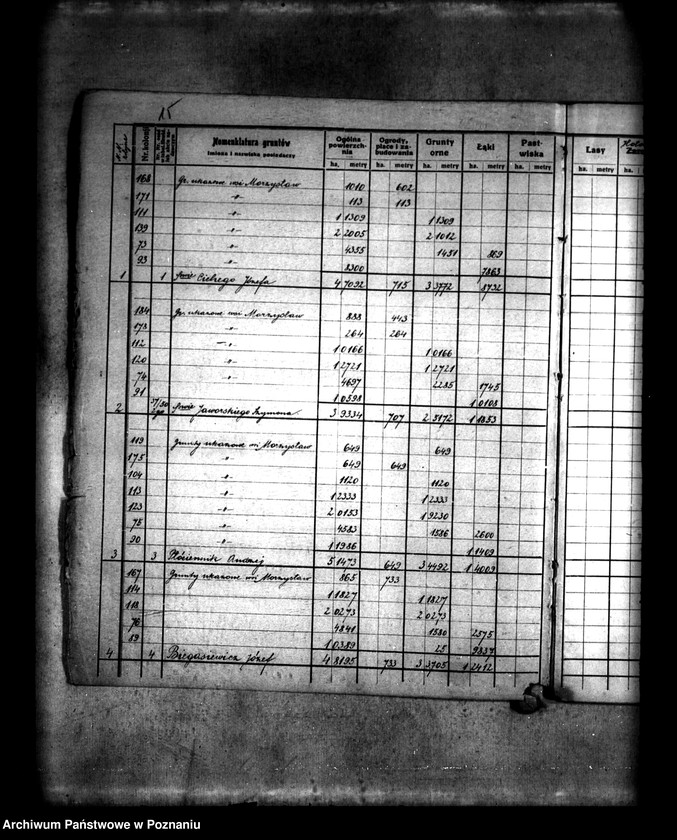 15
Nr. kolonji
Nomenklatura gruntów
imiona i nazwiska posiedarzy
Ogólna powierzchnia
Ogrody, place i zabudowania
Grunty orne
Łąki
Pastwiska
Lasy
ha. metry ha. metry ha. metry ha. metry ha. metry ha. metry ha.
168 Gr. ukazowe wsi Morzysław 1010 602
171 -"- 113 113
111 -"- 1 1309 1 1309
139 -"- 2 2005 2 1012
73 -"- 4355 1451 869
93 8300 7863
1 1 Cichego Józefa 4 7092 715 3 3772 8732
184 Gr. ukazowe wsi Morzysław 888 443
173 -"- 264 264
112 -"- 1 0166 1 0166
120 -"- 1 2721 1 2721
74 -"- 4697 2285 1745
91 1 0598 1 0108
2 Jaworskiego Szymona 3 9334 707 2 5172 1 1853
119 Grunty ukazowe wsi Morzysław 649 649
175 -"- 649 649
104 -"- 1120 1120
113 -"- 1 2333 1 2333
123 -"- 2 0153 1 9230
75 -"- 4583 1586 2600
90 -"- 1 1986 1 1409
3 3 Płóciennik Andrzej 5 1473 649 3 4492 1 4009
167 Grunty ukazowe wsi Morzysław 865 733
114 1 1827 1 1827
118 2 0273 2 0273
76 4841 1580 2575
89 1 0389 25 9837
4 4 Biegasiewicz Józef 4 8195 733 3 3705 1 2412
Archiwum Państwowe w Poznaniu